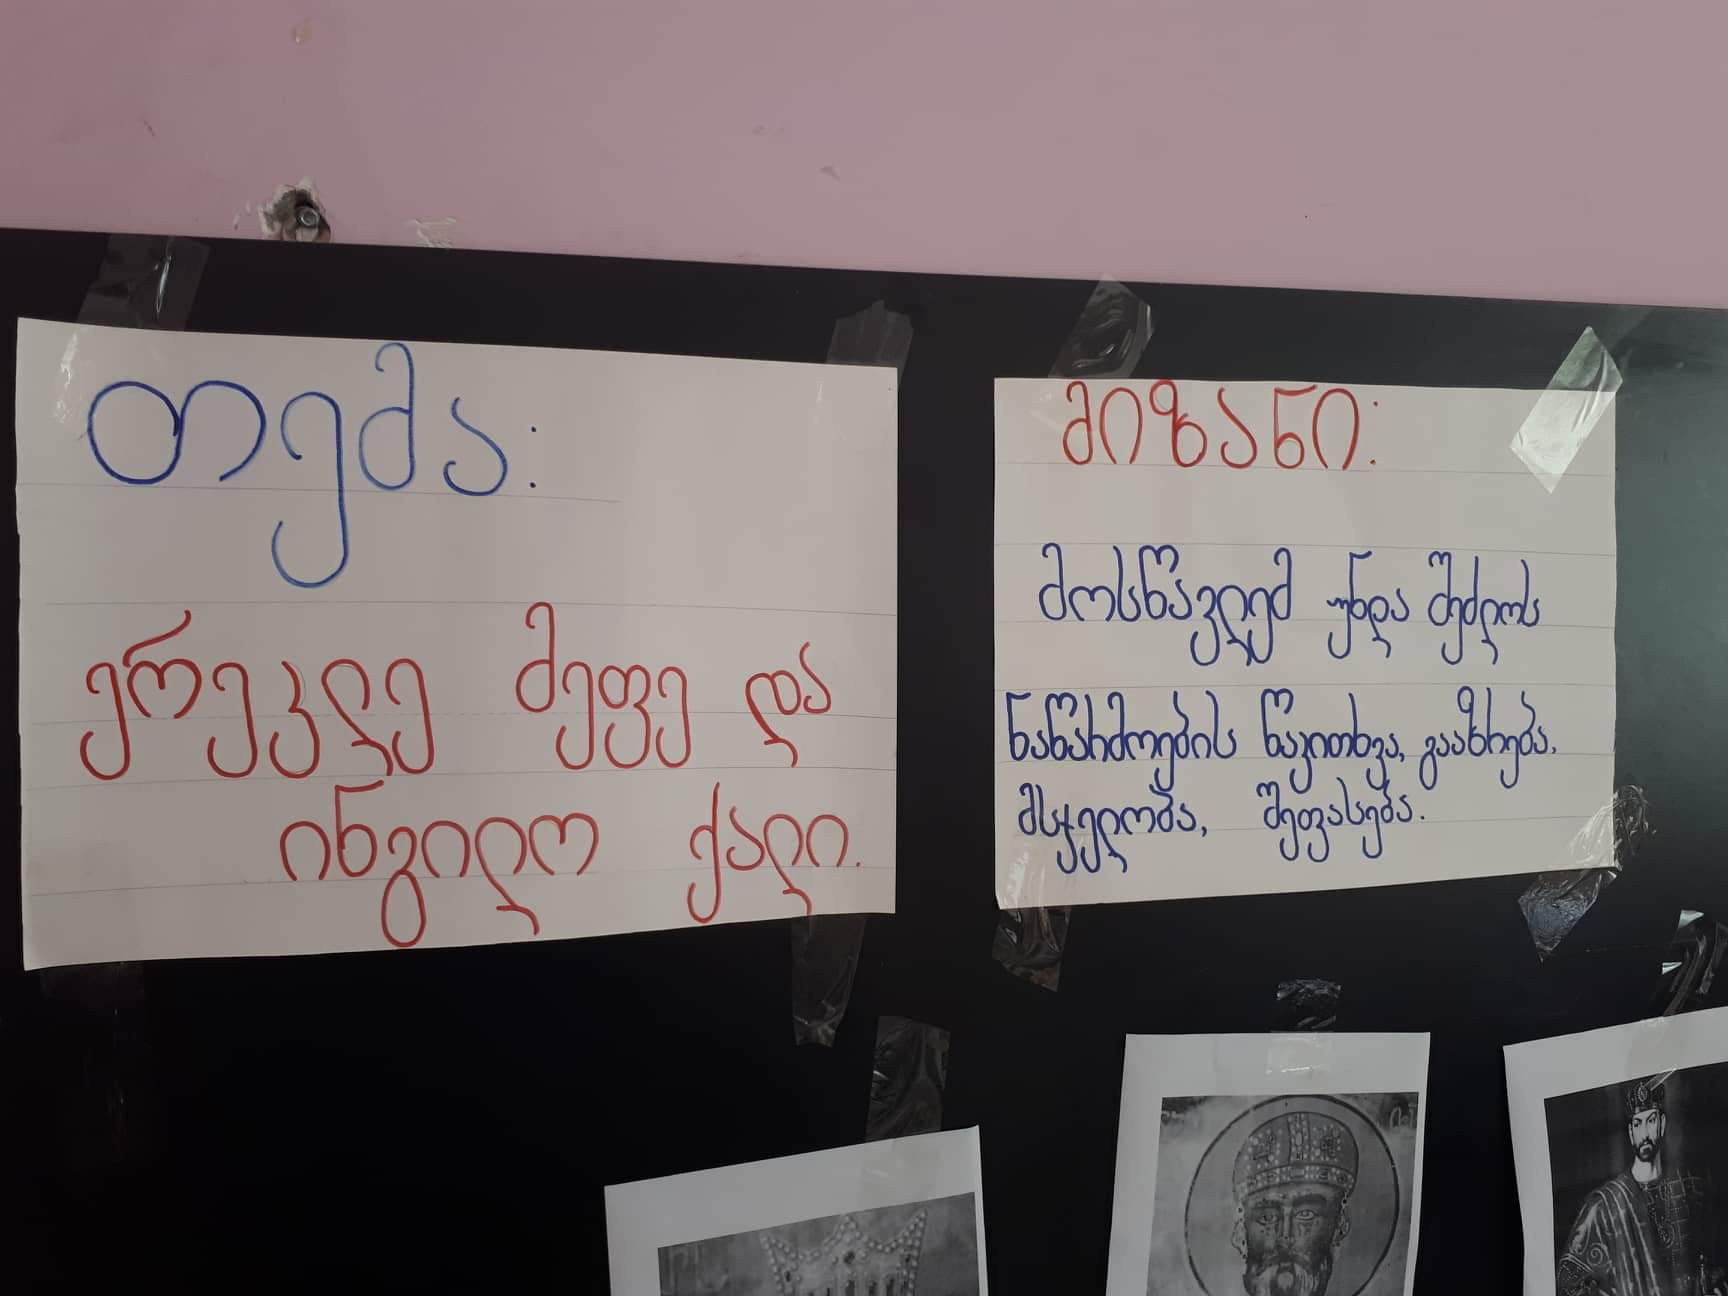 თემა:
ერეკლე მეფე და
ინგილო ქალი.
მიზანი:
მოსწავლემ უნდა შეძლოს
ნაწარმოების წაკითხვა, გააზრება,
მსჯელობა, შეფასება.